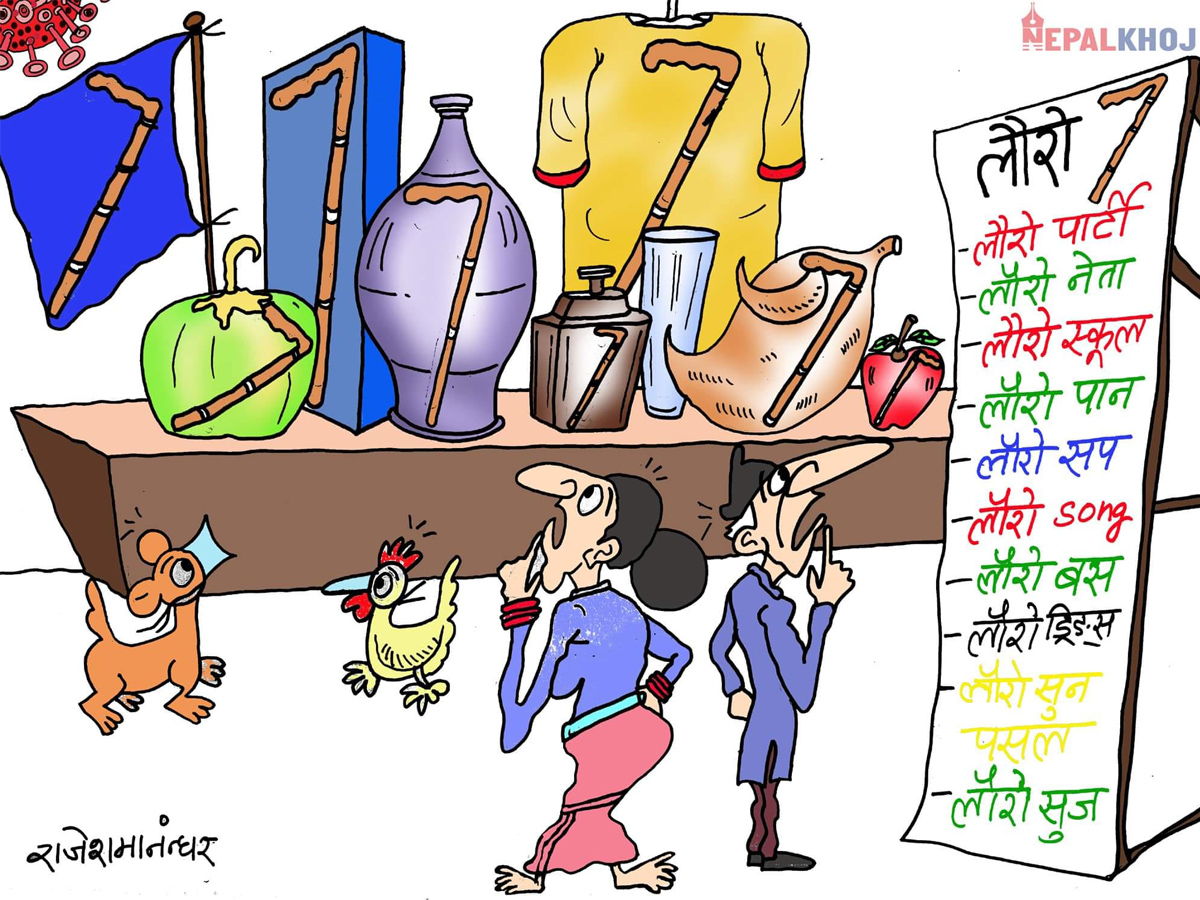 NEPALKHOJ
लौरो
- लौरो पार्टी
- लौरो नेता
- लौरो स्कूल
- लौरो पान
- लौरो सप
- लौरो song
- लौरो बस
- लौरो ड्रिङ्स
- लौरो सुन
पसल
- लौरो सुज
राजेशमानन्धर